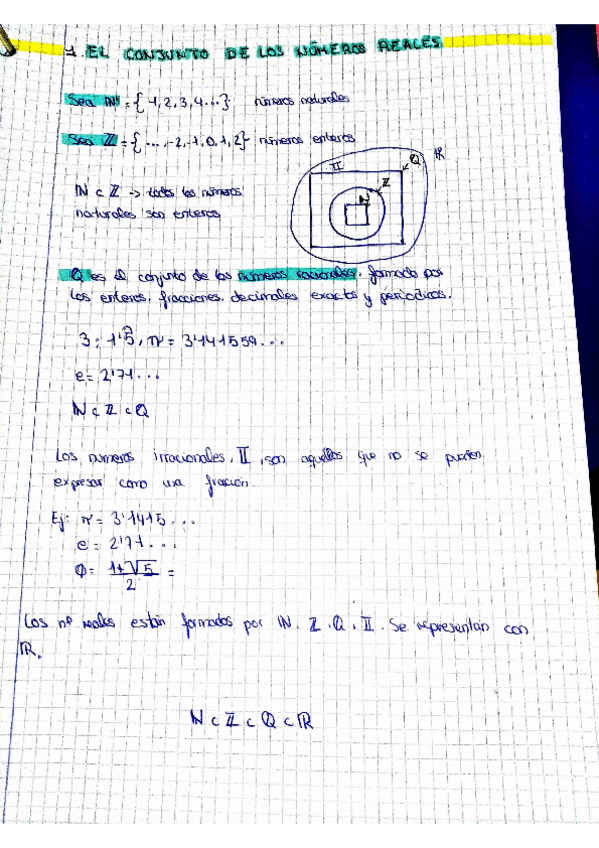 1. EL CONJUNTO DE LOS NÚMEROS REALES
Sea ℕ = {1, 2, 3, 4...} números naturales
Sea ℤ = {..., -2, -1, 0, 1, 2} números enteros
ℕ ⊂ ℤ -> todos los números
naturales son enteros
𝕀 ℕ ℤ ℚ ℝ
ℚ es el conjunto de los números racionales, formado por
los enteros, fracciones, decimales exactos y periódicos.
3, 1'5, π = 3'141559...
e = 2'71...
ℕ ⊂ ℤ ⊂ ℚ
Los números irracionales, 𝕀, son aquellos que no se pueden
expresar como una fracción.
Ej: π = 3'1415...
e = 2'71...
Φ = (1+√5)/2 =
Los nº reales están formados por ℕ, ℤ, ℚ, 𝕀. Se representan con
ℝ.
ℕ ⊂ ℤ ⊂ ℚ ⊂ ℝ